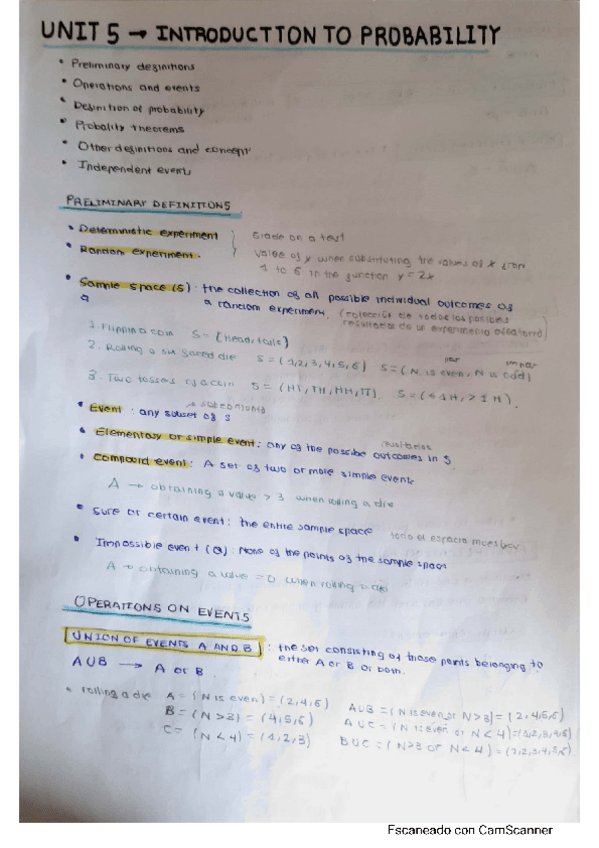 UNIT 5 → INTRODUCTION TO PROBABILITY
• Preliminary definitions
• Operations and events
• Definition of probability
• Probality theorems
• Other definitions and concept
• Independent events
PRELIMINARY DEFINITIONS
• Deterministic experiment } Grade on a test
• Random experiment. } Value of y when substituting the values of x from
1 to 6 in the function y = 2x
• Sample space (S) : the collection of all possible individual outcomes of
a random experiment. (colección de todos los posibles
resultados de un experimento aleatorio)
1. Flipping a coin S = {head, tails}
par impar
2. Rolling a six faced die S = (1,2,3,4,5,6) S = (N is even, N is odd)
3. Two tosses of a coin S = (HT, TH, HH, TT). S = (≤ 1H, > 1H).
subconjunto
• Event : any subset of S
resultados
• Elementary or simple event : any of the possible outcomes in S.
• Compound event : A set of two or more simple events
A → obtaining a value > 3 when rolling a die
• Sure or certain event : the entire sample space todo el espacio muestral
• Impossible event (Ø) : None of the points of the sample space
A → obtaining a value = 0 when rolling a die
OPERATIONS ON EVENTS
UNION OF EVENTS A AND B : the set consisting of those points belonging to
either A or B or both.
A∪B → A or B.
• rolling a die A = (N is even) = (2,4,6) A∪B = (N is even or N>3) = (2,4,5,6)
B = (N > 3) = (4,5,6) A∪C = (N is even or N < 4) = (1,2,3,4,6)
C = (N < 4) = (1,2,3) B∪C = (N>3 or N < 4) = (1,2,3,4,5,6).
Escaneado con CamScanner